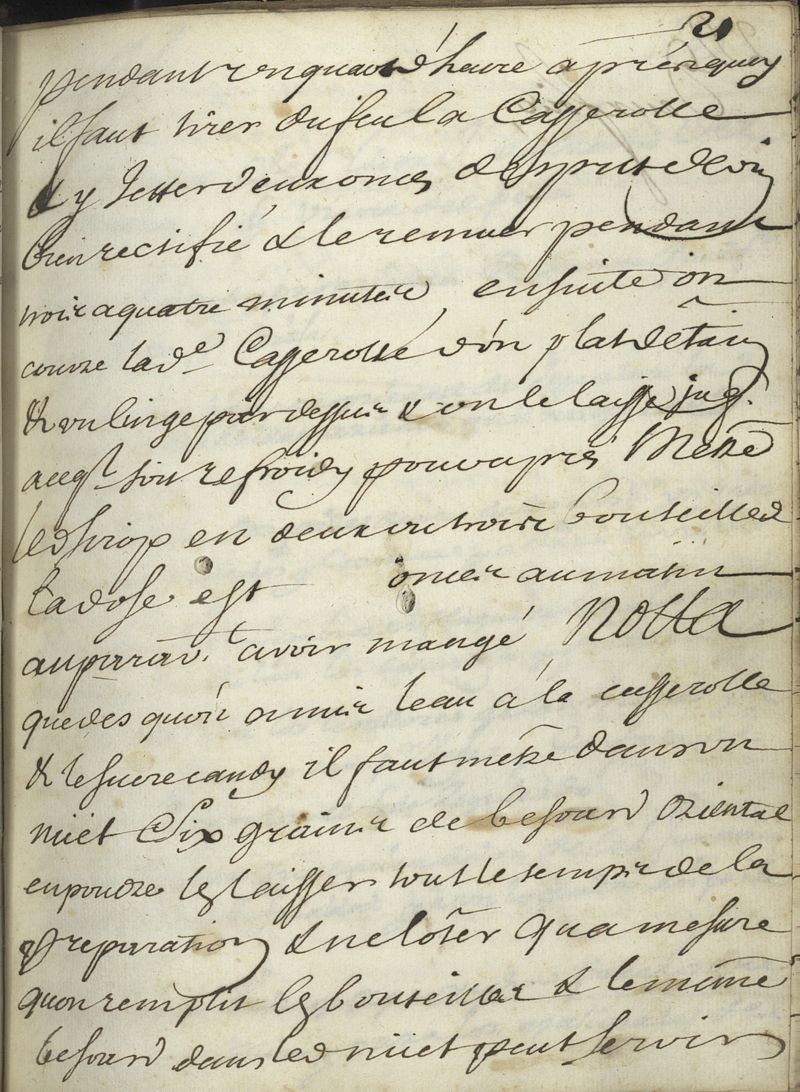 21
pendant un quart d'heure apres quoy
il faut tirer du feu la Casserolle
& y Jetter deux onces d'esprit de vin
bien rectifié & le remuer pendant
trois a quatre minuteis ensuite on
couvre lad.e Casserolle d'ún plat d'étain
& un linge par dessus & on le laisse jusq.
aceq.t soit refroidy pour apres Mettre
led sirop en deux ou trois bouteilles
La dose est onces au matin
auparav.t avoir mangé Notta
que des quón a mis l'eau á la casserolle
& le sucre candy il faut mettre dans un
nüet Six grains de besoard Oriental
en poudre le laisser tout le temps de la
preparation & ne lôter qua mesure
quon remplit les bouteilles & le même
besoard dans led nüet peut servir